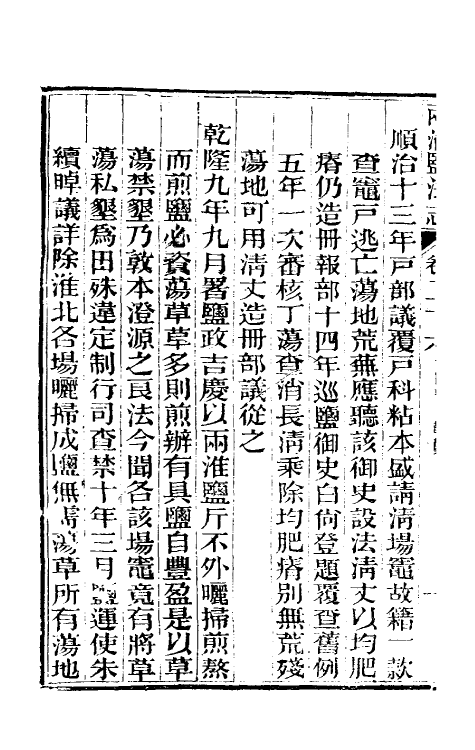 順治十三年戸部議覆戸科粘本盛請淸場竈故籍一款
查竈戸逃亡蕩地荒蕪應聽該御史設法淸丈以均肥
瘠仍造冊報部十四年巡鹽御史白尙登題覆查舊例
五年一次審核丁蕩查消長淸乘除均肥瘠別無荒殘
蕩地可用淸丈造冊部議從之
乾隆九年九月署鹽政吉慶以兩淮鹽斤不外曬掃煎熬
而煎鹽必資蕩草草多則煎辦有具鹽自豐盈是以草
蕩禁墾乃敦本澄源之良法今聞各該場竈竟有將草
蕩私墾爲田殊違定制行司查禁十年三月鹽運使朱
續晫議詳除淮北各場曬掃成鹽無需蕩草所有蕩地